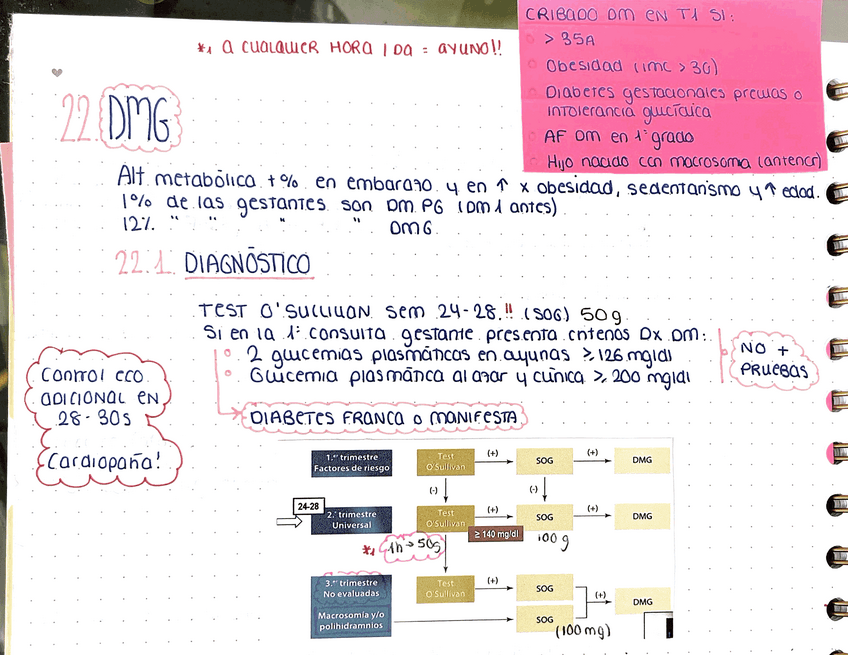 *1 A CUALQUIER HORA DÍA = AYUNO!!
CRIBADO DM EN T1 SI:
> 35A
Obesidad (imc > 30)
Diabetes gestacionales previas o
intolerancia glucídica
AF DM en 1º grado
Hijo nacido con macrosomia (anterior)
22. DMG
Alt metabólica +% en embarazo y en ↑ x obesidad, sedentarismo y ↑ edad.
1% de las gestantes son DM PG (DM1 antes)
12% " " " " DMG
22.1. DIAGNÓSTICO
TEST O'SULLIVAN sem 24-28.!! (SOG) 50g
Si en la 1º consulta gestante presenta criterios Dx DM:
2 glucemias plasmáticas en ayunas ≥ 126 mg/dl
Glucemia plasmática al azar y clínica ≥ 200 mg/dl
NO +
PRUEBAS
DIABETES FRANCA O MANIFESTA
Control eco
adicional en
28-30s
Cardiopatía!
1.er trimestre
Factores de riesgo
Test
O'Sullivan
(+)
SOG
(+)
DMG
(-)
(-)
24-28
2.º trimestre
Universal
Test
O'Sullivan
(+)
≥ 140 mg/dl
SOG
100g
(+)
DMG
*1 1h → 50g
3.er trimestre
No evaluadas
Test
O'Sullivan
(+)
SOG
(+)
DMG
Macrosomía y/o
polihidramnios
SOG
(100 mg)